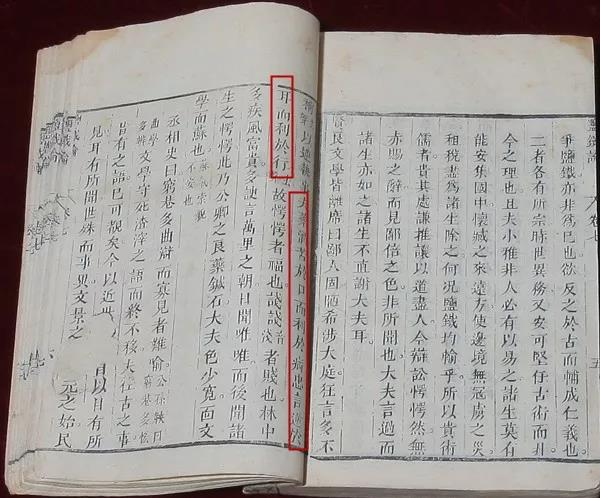 爭鹽鐵亦非為己也欲反之於古而輔成仁義也
二者各有所宗時世異務又安可堅任古術而非
今之理也且夫小雅非人必有以易之諸生莫有
能安集國中懷臧之來遠方使邊境無寇虜之災
租稅盡為諸生除之何況鹽鐵均輸乎所以貴術
儒者貴其處謙推讓以道盡人今辯訟愕愕然無
赤賜之辭而見鄙倍之色非所聞也大夫言過而
諸生亦如之諸生不直謝大夫耳
賢良文學皆離席曰鄙人固陋希涉大庭狂言多不
以逆執事夫藥酒苦於口而利於病忠言逆於
耳而利於行故愕愕者福也諓諓者賤也林中
多疾風富貴多諛言萬里之朝日聞唯唯而後聞諸
生之愕愕此乃公卿之良藥鍼石大夫色少寬面文
學而蘇也
丞相史曰窮巷多曲辯而寡見者難喻
文學守死滓滓之語而終不移夫往古之事
昔有之語已可覩矣今以近
自以目有所
見耳有所聞世殊而事異文景之
元之始民